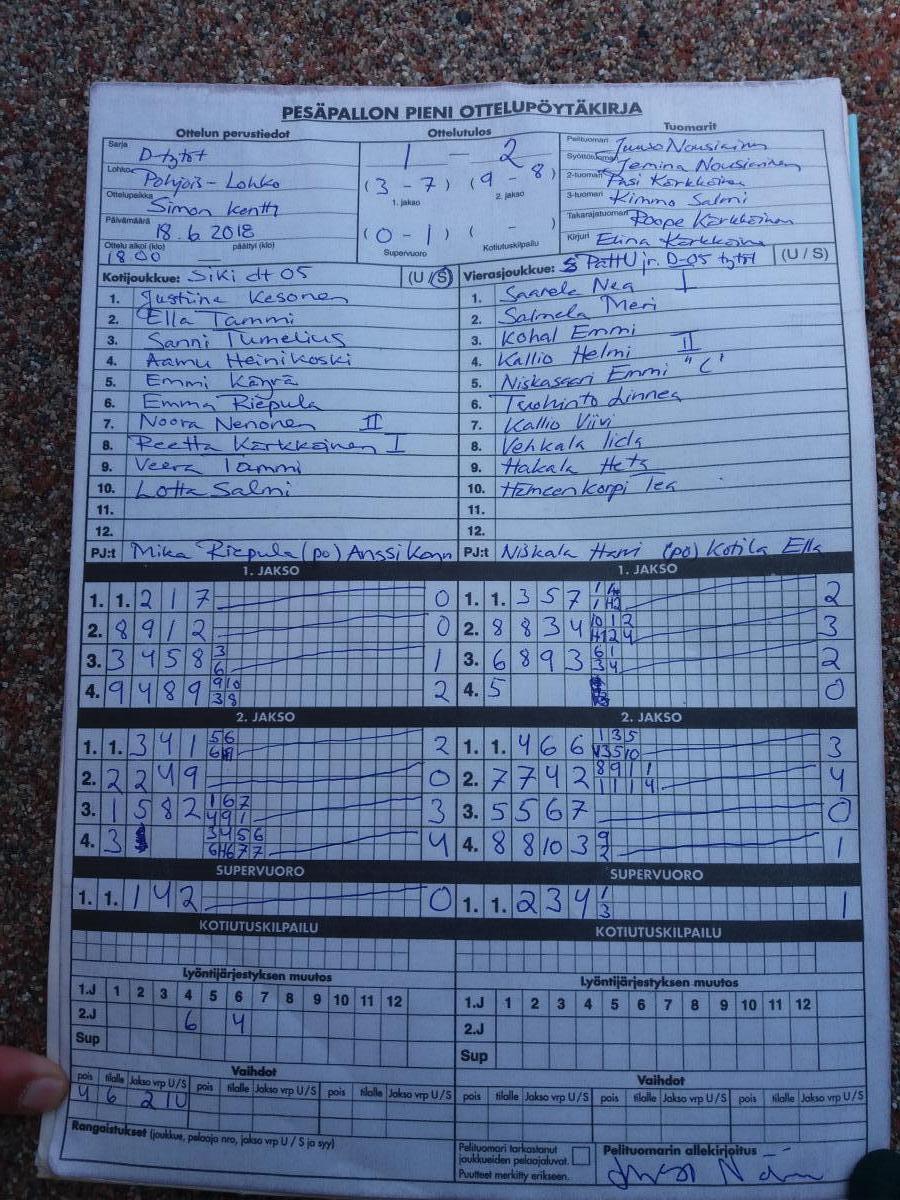 PESÄPALLON PIENI OTTELUPÖYTÄKIRJA
Ottelun perustiedot Ottelutulos Tuomarit
Sarja D-tytöt
Lohko Pohjois-Lohko
Ottelupaikka Simon kenttä
Päivämäärä 18.6.2018
Ottelu alkoi (klo) päättyi (klo)
18.00 —
1 - 2
(3 - 7) (9 - 8)
1. jakso 2. jakso
(0 - 1) ( - )
Supervuoro Kotiutuskilpailu
Pelituomari Juuso Nousiainen
Syöttötuomari Jemina Nousiainen
2-tuomari Pasi Karkkainen
3-tuomari Kimmo Salmi
Takarajatuomari Roope Karkkainen
Kirjuri Elina Karkkainen
Kotijoukkue: SiKi dt 05 (U / S)
1. Justiina Kesonen
2. Ella Tammi
3. Sanni Tumelius
4. Aamu Heinikoski
5. Emmi Käyrä
6. Emma Riepula
7. Noora Nenonen II
8. Reetta Karkkainen I
9. Veera Tammi
10. Lotta Salmi
11.
12.
PJ:t Mika Riepula (po) Anssi
Vierasjoukkue: PattU jr. D-05 tytöt (U / S)
1. Saarela Nea I
2. Salmela Meri
3. Kohal Emmi
4. Kallio Helmi II
5. Niskasaari Emmi "C"
6. Tuohinto Linnea
7. Kallio Viivi
8. Vehkala Iida
9. Hakala Heta
10. Hämeenkorpi Tea
11.
12.
PJ:t Niskala Harri (po) Kotila Ella
1. JAKSO 1. JAKSO
1. 1. 2 1 7 0
2. 8 9 1 2 0
3. 3 4 5 8 3 1
6
4. 9 4 8 9 9 10 2
3 8
1. 1. 3 5 7 2
2. 8 8 3 4 3
3. 6 8 9 3 6 1 2
3 4
4. 5 0
2. JAKSO 2. JAKSO
1. 1. 3 4 1 5 6 2
2. 2 2 4 9 0
3. 1 5 8 2 1 6 7 3
4 9 1
4. 3 3 4 5 6 4
1. 1. 4 6 6 1 3 5 3
2. 7 7 4 2 8 9 1 1 4
3. 5 5 6 7 0
4. 8 8 10 3 9 1
2
SUPERVUORO SUPERVUORO
1. 1. 1 4 2 0
1. 1. 2 3 4 1 1
3
KOTIUTUSKILPAILU KOTIUTUSKILPAILU
Lyöntijärjestyksen muutos Lyöntijärjestyksen muutos
1.J 1 2 3 4 5 6 7 8 9 10 11 12 1.J 1 2 3 4 5 6 7 8 9 10 11 12
2.J 6 4 2.J
Sup Sup
Vaihdot Vaihdot
pois tilalle Jakso vrp U/S pois tilalle Jakso vrp U/S pois tilalle Jakso vrp U/S pois tilalle Jakso vrp U/S pois tilalle Jakso vrp U/S pois tilalle Jakso vrp U/S
4 6 2 1U
Rangaistukset (joukkue, pelaaja nro, jakso vrp U / S ja syy)
Pelituomari tarkastanut
joukkueiden pelaajaluvat.
Puutteet merkitty erikseen.
Pelituomarin allekirjoitus